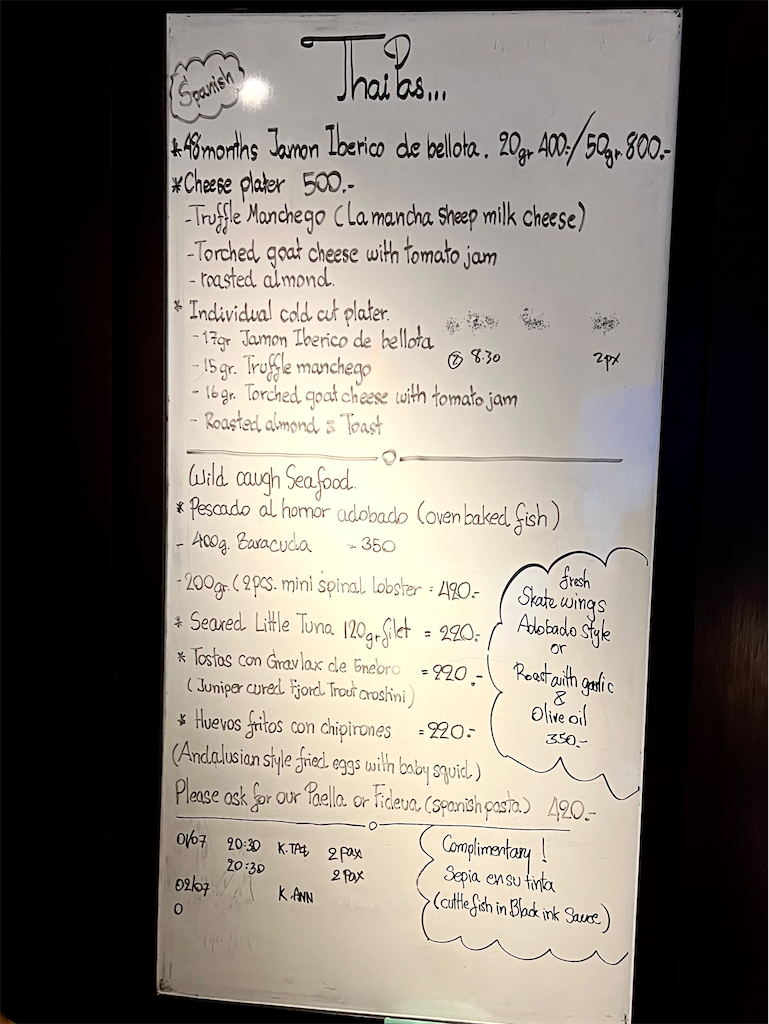 Spanish
ThaiPas...
*48months Jamon Iberico de bellota. 20gr 400.-/50gr. 800.-
*Cheese plater 500.-
-Truffle Manchego (La mancha sheep milk cheese)
-Torched goat cheese with tomato jam
- roasted almond.
* Individual cold cut plater.
- 17gr Jamon Iberico de bellota
- 15gr. Truffle manchego
8.30 2px
- 16gr. Torched goat cheese with tomato jam
- Roasted almond & Toast
Wild caugh Seafood.
* Pescado al hornor adobado (oven baked fish)
- 400g. Baracuda = 350
- 200gr. (2pcs. mini spinal lobster = 420.-
* Seared Little Tuna 120gr filet = 220.-
* Tostas con Gravlax de Enebro = 220.-
(Juniper cured Fjord Trout crostini)
* Huevos fritos con chipirones = 220.-
(Andalusian style fried eggs with baby squid.)
Please ask for our Paella or Fideua (spanish pasta) 420.-
fresh
Skate wings
Adobado style
or
Roast with garlic
&
Olive oil
350.-
01/07 20:30 K.TAE 2 Pax
20:30 2 Pax
02/07 K.ANN
0
Complimentary!
Sepia en su tinta
(cuttle fish in Black ink Sauce)